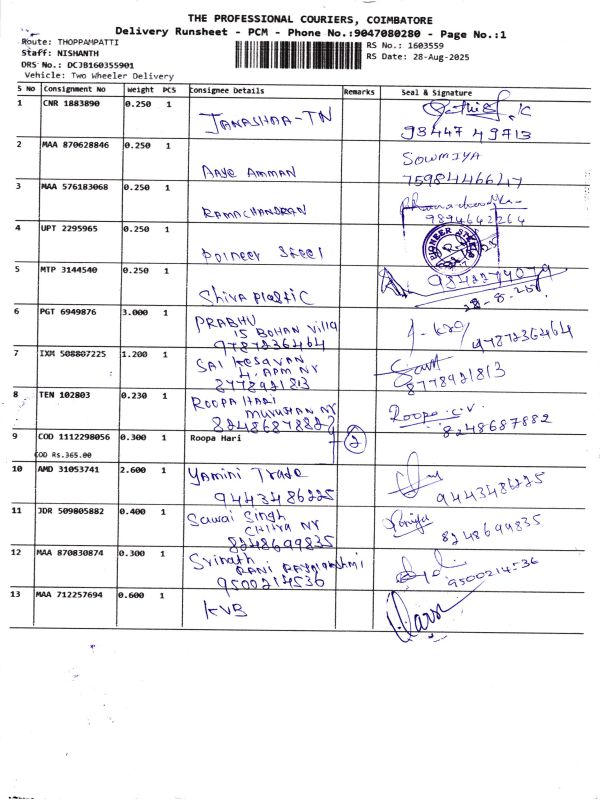 THE PROFESSIONAL COURIERS, COIMBATORE
Delivery Runsheet - PCM - Phone No.:9047080280 - Page No.:1
Route: THOPPAMPATTI
Staff: NISHANTH
DRS No.: DCJB160355901
Vehicle: Two Wheeler Delivery
RS No.: 1603559
RS Date: 28-Aug-2025
S No Consignment No Weight PCS Consignee Details Remarks Seal & Signature
1 CNR 1883890 0.250 1 TN
93447 49713
2 MAA 870628846 0.250 1 AMMAN SOWMIYA
7598446647
3 MAA 576183068 0.250 1 RAMACHANDRAN
9894642264
4 UPT 2295965 0.250 1 Poineer Steel PIONEER STEELS
5 MTP 3144540 0.250 1 Shiva plastic 9842274079
28-8-25
6 PGT 6949876 3.000 1 PRABHU
15 BOHAN Villa
9787236464 9787236464
7 IXM 508807225 1.200 1 SAI KESAVAN
4, APM NY
8778921813 8778921813
8 TEN 102803 0.230 1 ROOPA HARI
MURUGAN NY
8248687882 Roopa
8248687882
9 COD 1112298056 0.300 1 Roopa Hari 2
COD Rs.365.00
10 AMD 31053741 2.600 1 Yamini Trade
9443486225 9443486225
11 JDR 509805882 0.400 1 Sawai Singh
CHITRA NY
8248699835 8248699835
12 MAA 870830874 0.300 1 Srinath
9500214536 9500214536
13 MAA 712257694 0.600 1 KVB